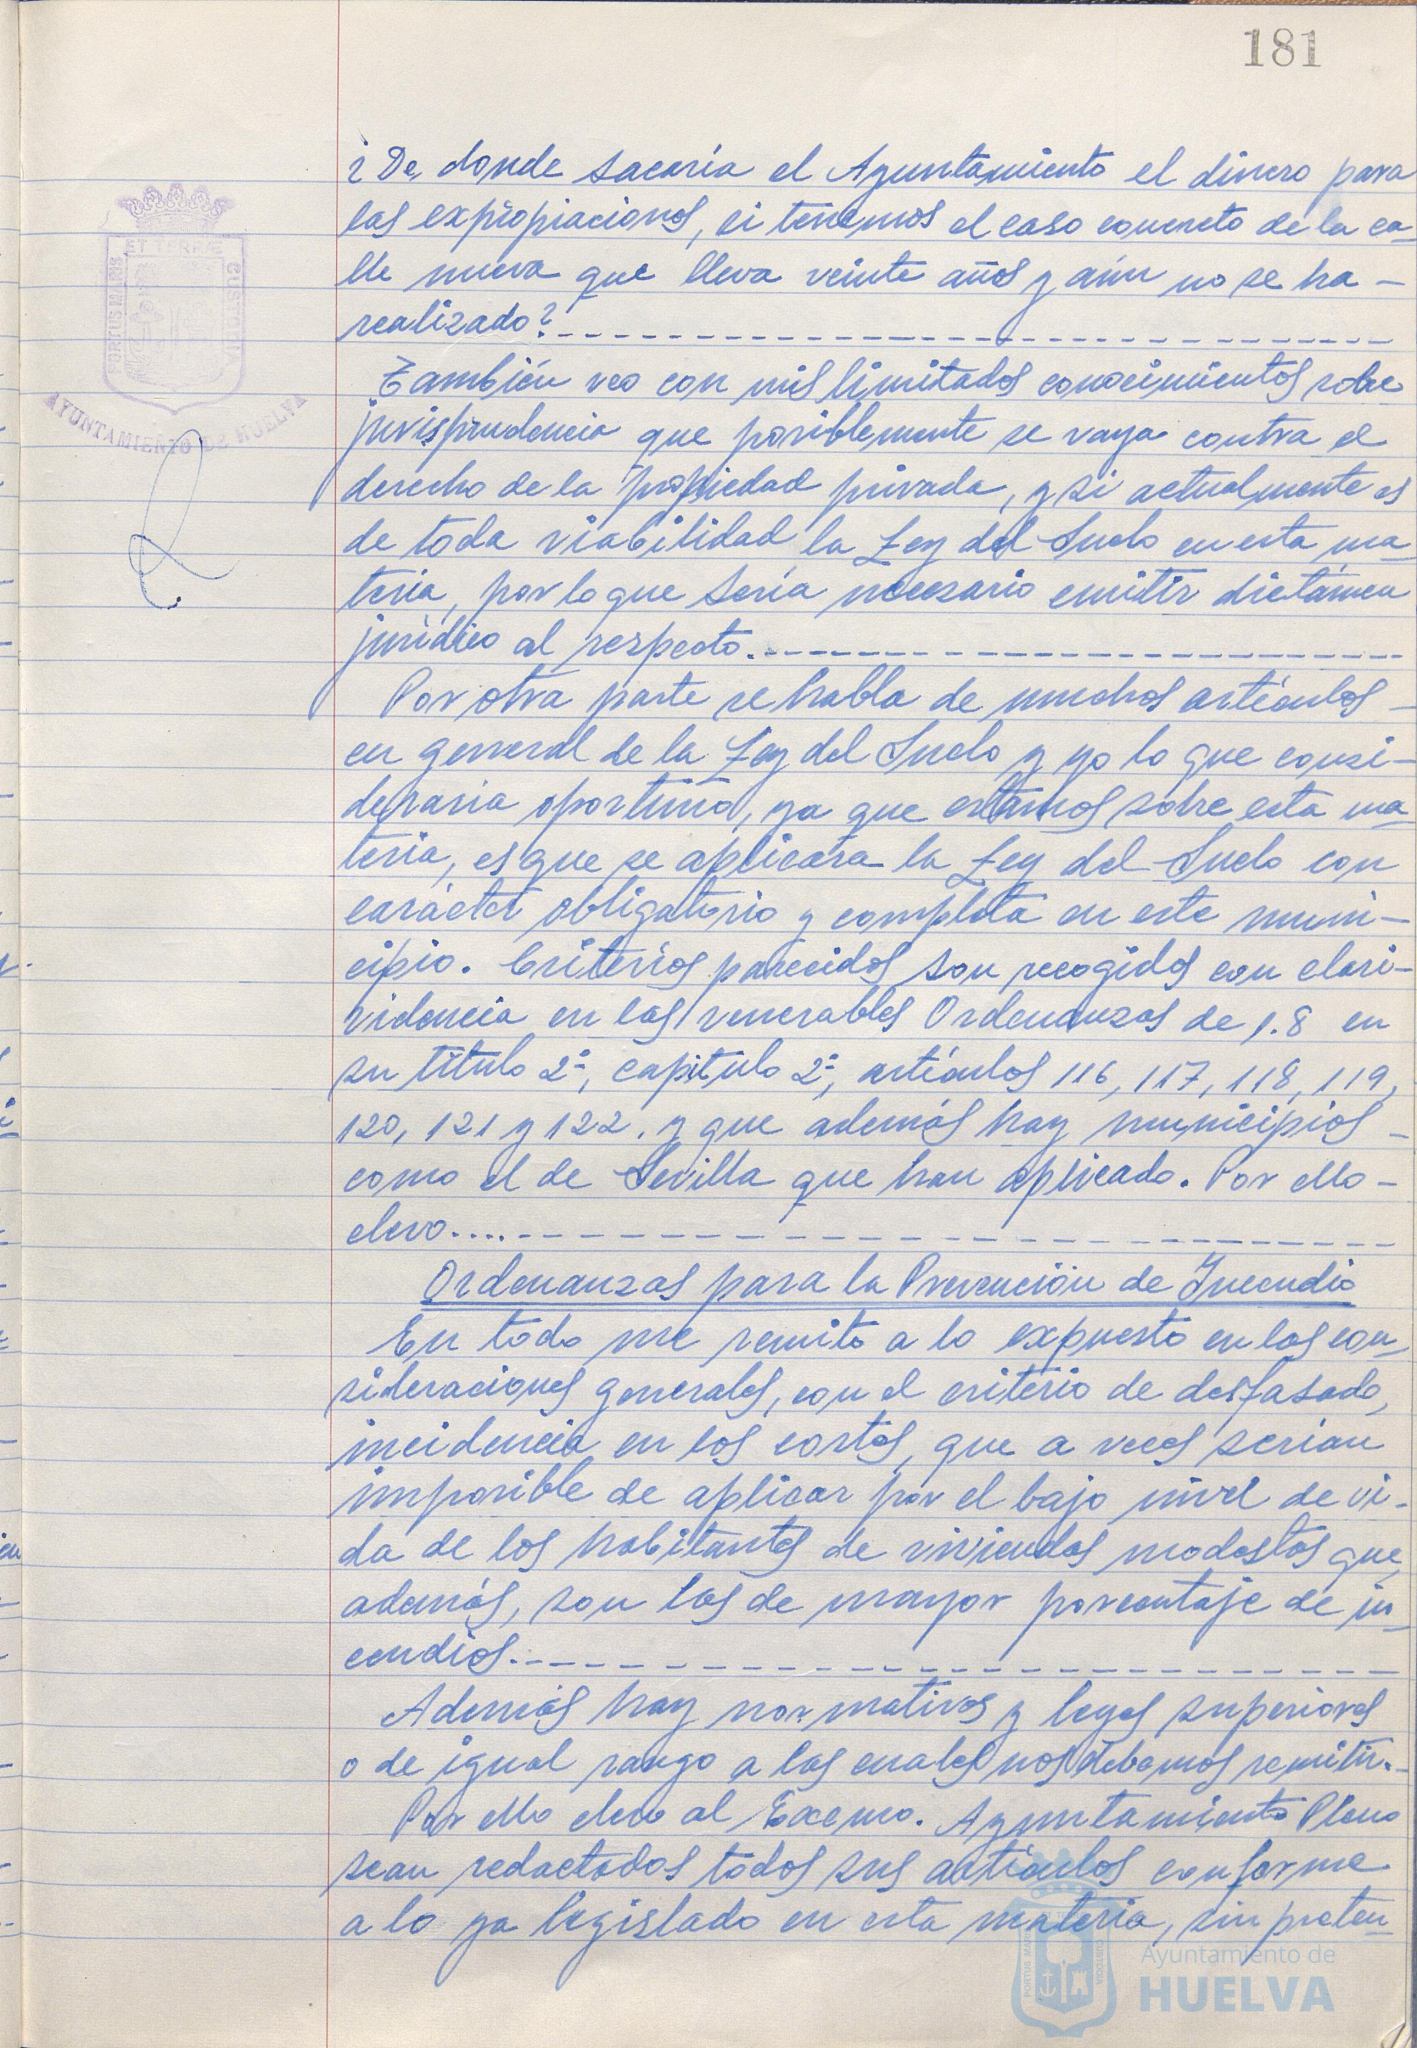 181
¿De donde sacaría el Ayuntamiento el dinero para
las expropiaciones, si tenemos el caso concreto de la ca-
lle nueva que lleva veinte años y aún no se ha -
realizado?
También veo con mis limitados conocimientos sobre
jurisprudencia que posiblemente se vaya contra el
derecho de la propiedad privada, y si actualmente es
de toda viabilidad la Ley del Suelo en esta ma-
teria, por lo que sería necesario emitir dictámen
jurídico al respecto.
Por otra parte se habla de muchos artículos -
en general de la Ley del Suelo y yo lo que consi-
deraria oportuno, ya que estamos sobre esta ma-
teria, es que se aplicara la Ley del Suelo con
carácter obligatorio y completa en este muni-
cipio. Criterios parecidos son recogidos con clari-
videncia en las venerables Ordenanzas de 1.8 en
su título 2º, capitulo 2º, artículos 116, 117, 118, 119,
120, 121 y 122. y que además hay municipios -
como el de Sevilla que han aplicado. Por ello -
elevo....
Ordenanzas para la Prevención de Incendio
En todo me remito a lo expuesto en las con-
sideraciones generales, con el criterio de desfasado,
incidencia en los costes, que a veces serian
imposible de aplicar por el bajo nivel de vi-
da de los habitantes de viviendas modestas que,
además, son las de mayor porcentaje de in-
cendios.
Además hay normativas y leyes superiores
o de igual rango a las cuales nos debemos remitir.-
Por ello elevo al Excmo. Ayuntamiento Pleno
sean redactados todos sus artículos conforme
a lo ya legislado en esta materia, sin preten-
ET TERRÆ
PORTUS MARIS
CUSTODIA
AYUNTAMIENTO DE HUELVA
PORTUS MARIS
CUSTODIA
Ayuntamiento de
HUELVA